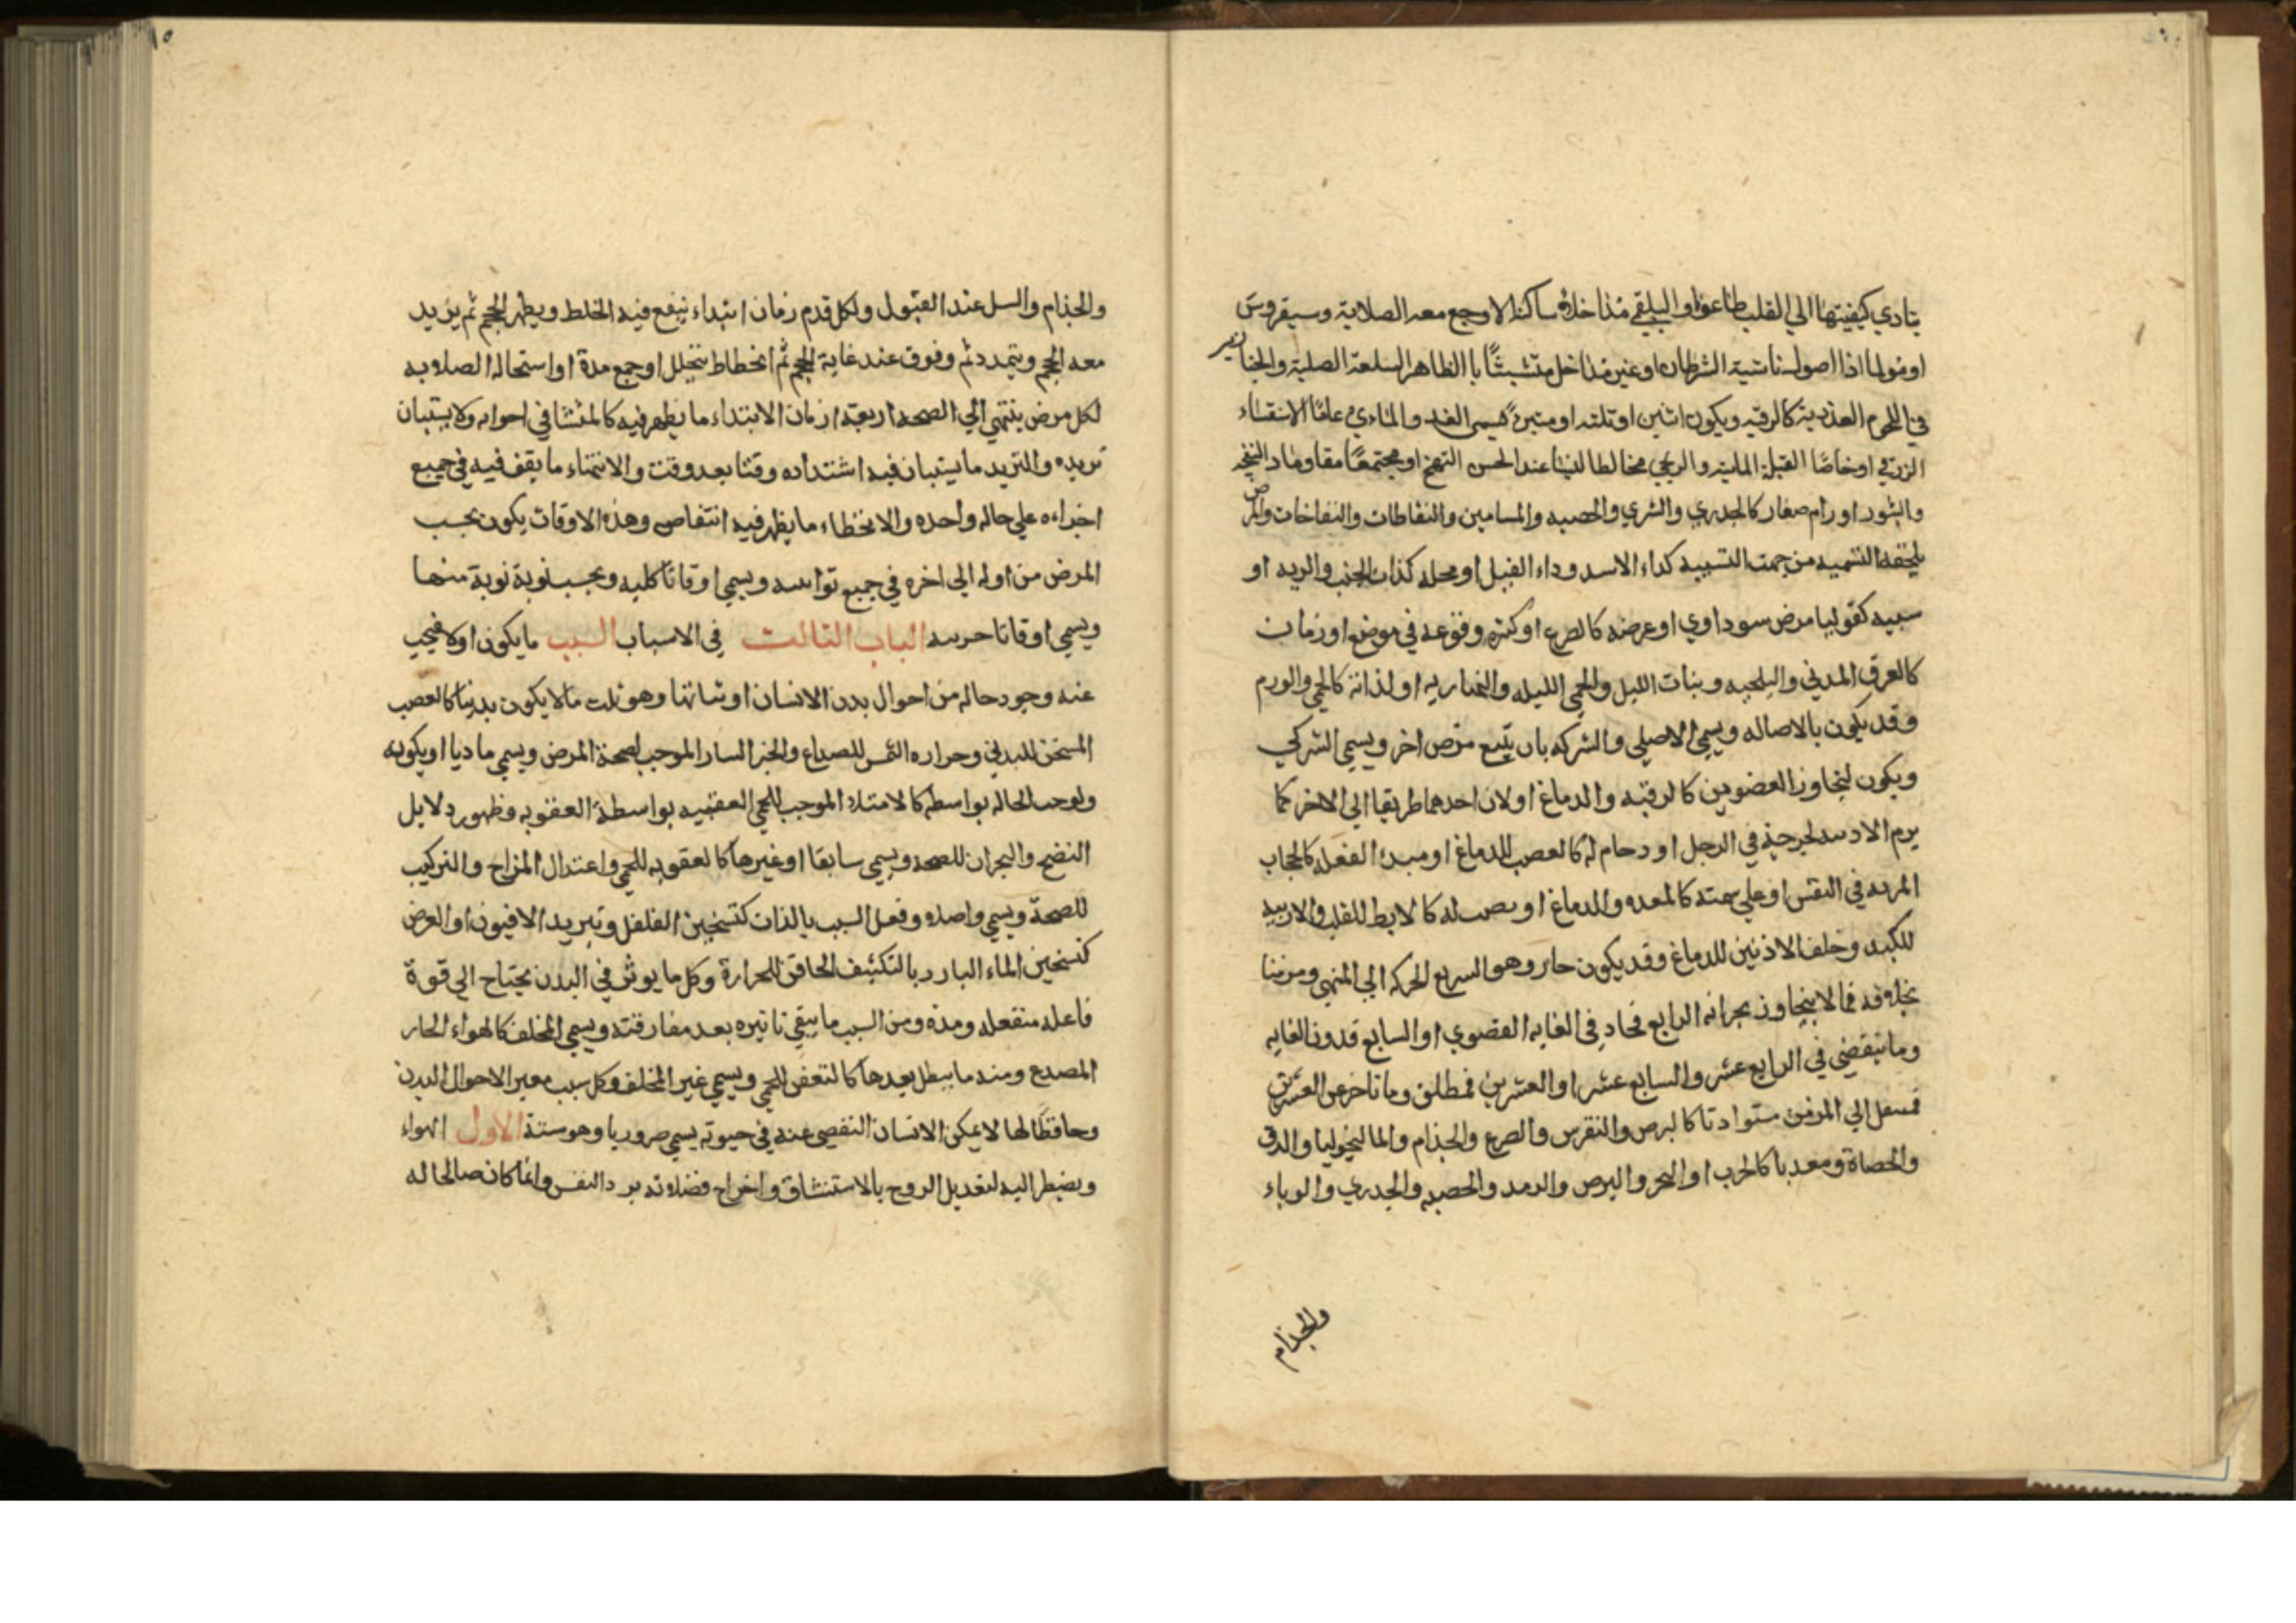 يتادي كيفيتها الي القلب طاعوا والبلغي مذاخلا ساكنا لا وجع معه الصلابة وسيقروس
او مولما اذا اصول ناشية الشرطان او غير مذاخل متشبثا با الظاهر السلعة الصلبة والخنازير
في اللحوم العذدية كالرقبه ويكون اثنين او ثلثه او متبرئ فيسمي الغدد والمادي عاما الاستسقاء
الزرقي او خاصا القبلة الماية والريحي مخالطا لينا عند الحس التهيج او مجتمعا مقاوما د النفخه
والبثور اورام صغار كالجدري والشري والحصبه والمسامير والنفاطات والنفاخات والمرض
يلحقه التسميه من جهت التشبيه كداء الاسد وداء الفيل او محله كذات الجنب والريه او
سببه كقولنا مرض سوداوي او عرضه كالصرع او كثره وقوعه في موضع او زمان
كالعرق المدني والبلخيه وبنات الليل والحمي الليله والنهاريه او لذاته كالحمي والورم
وقد يكون بالاصاله ويسمي الاصلي والشركه بان يتبع مرض اخر ويسمي الشركي
ويكون لتجاوز العضوين كالرقبه والدماغ او لان احدهما طريقا الي الاخر كما
يرم الاربيه لجرحة في الرجل او دحام له كالعصب للدماغ او مبدا الفعله كالحجاب
المريه في النفس او علي سمته كالمعده والدماغ او بصب له كالابط للقلب والاربيه
للكبد وخلف الاذنين للدماغ وقد يكون حار وهو السريع الحركه الي المنتهي ومزمنا
بخلافه فما لا يتجاوز بحرانه الرابع فحاد في الغايه القصوي او السابع فدون الغايه
وما ينقضي في الرابع عشر والسابع عشر او العشرين فمطلق وما تاخر عن العشرين
فسعل الي المزمن متوادتا كالبرص والنقرس والصرع والجذام والماليخوليا والدق
والحصاة ومعديا كالجرب او البخر والبرص والرمد والحصبه والجدري والوباء
والجذام
والجذام والسل عند القبول ولكل قدم زمان ابتداء ينفع فيه الخلط ويظهر الحجم ثم يزيد
معه الحجم ويتمدد ثم وقوف عند غاية الحجم ثم انحطاط بتحلل او جمع مدة او استحاله الصلابه
لكل مرض ينتهي الي الصحه اربعة ازمان الابتداء ما يظهر فيه كالمنشا في احواله ولا يستبان
تزيده والتزيد ما يستبان فيه اشتداده وقتا بعد وقت والانتهاء ما يقف فيه في جميع
اجزاءه علي حاله واحده والانحطاء ما يظهر فيه انتقاص وهذه الاوقات يكون بحسب
المرض من اوله الي اخره في جميع نوابه ويسمي اوقاتا كليه وبحسب نوبة نوبة منها
ويسمي اوقاتا جزييه الباب الثالث في الاسباب السبب ما يكون اولا فيجب
عنه وجود حاله من احوال بدن الانسان او ثباتها وهو ثلث ما لا يكون بدنيا كالعصب
المسخن للبدني وحراره الشمس للصداع والخبر السار الموجب لصحة المرض ويسمي ماديا او يكونه
ولوجب الحاله بواسطه كالامتلا الموجب للحمي العفنيه بواسطة العفونه وظهور دلايل
النضج والبحران للصحه ويسمي سابقا او غيرها كالعفونه للحمي واعتدال المزاج والتركيب
للصحة ويسمي واصلا وفعل السبب بالذات كتسخين الفلفل وتبريد الافيون او العرض
كتسخين الماء البارد بالتكثيف الحاقن للحرارة وكل ما يوثر في البدن يحتاج الي قوة
فاعله منفعله ومدة ومن السبب ما يبقي تاثيره بعد مفارقته ويسمي المخلف كالهواء الحار
المصدع ومنه ما يبطل بعدها كالتعفن للحمي ويسمي غير المخلف وكل سبب مغير الاحوال البدن
وحافظا لها لا يمكن الانسان التفصي عنه في حيوته يسمي ضروريا وهو ستة الاول الهواء
ويضطر اليه لتعديل الروح بالاستنشاق واخراج فضلاته برد النفس وانما كان صالحا له